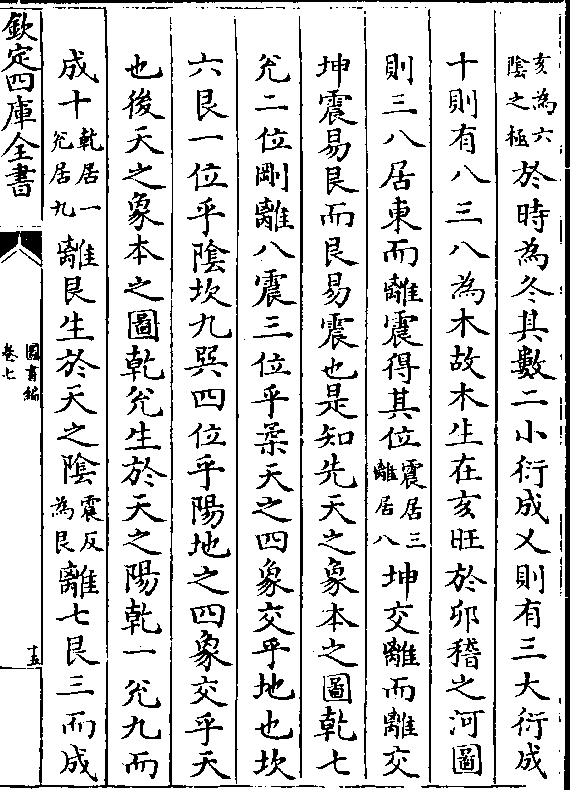 亥為六
陰之極
於時為冬其數二小衍成乂則有三大衍成
十則有八三八為木故木生在亥旺於卯稽之河圖
則三八居東而離震得其位
震居三
離居八
坤交離而離交
坤震易艮而艮易震也是知先天之象本之圖乾七
兊二位剛離八震三位乎柔天之四象交乎地也坎
六艮一位乎陰坎九巽四位乎陽地之四象交乎天
也後天之象本之圖乾兊生於天之陽乾一兊九而
成十
乾居一
兊居九
離艮生於天之陰
震反
為艮
離七艮三而成
欽定四庫全書
圖書編
卷七
十五